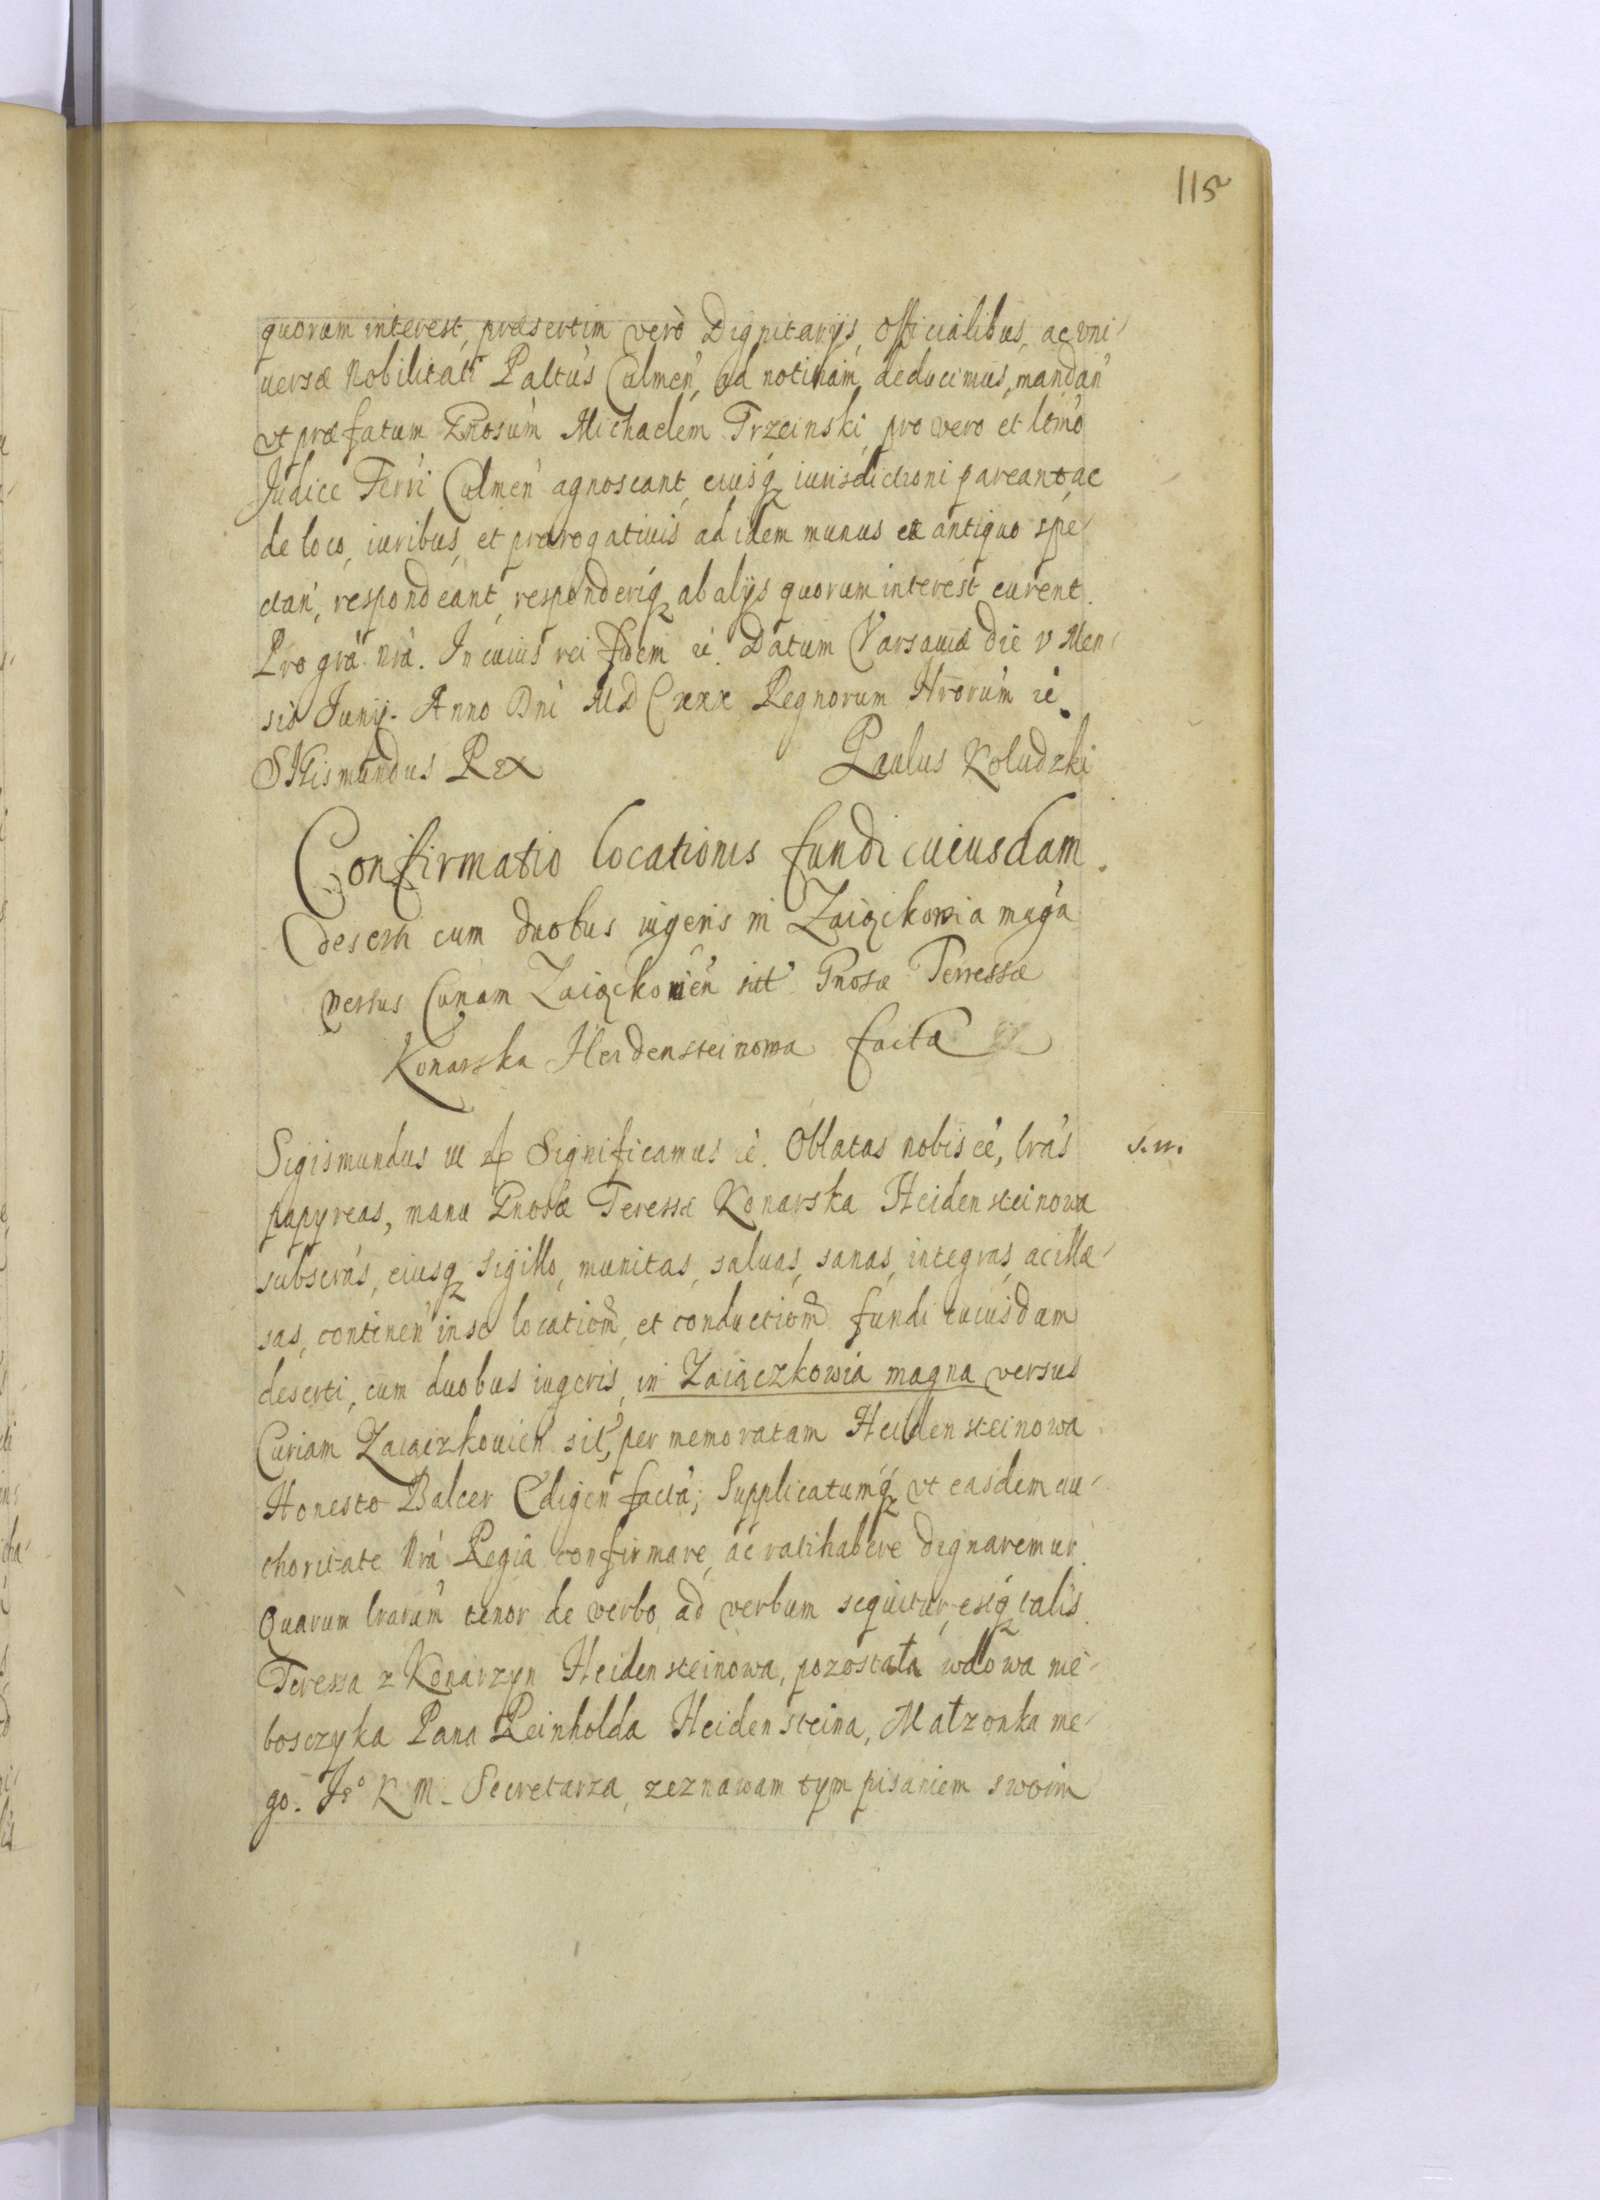 115
quorum interest, præsertim verò Dignitarijs, Officialibus, ac vni-
uersæ Nobilitati Paltûs Culmeń, ad notitiam deducimus, mandań
vt præfatum Gnosum Michaelem Trzcinski, pro vero et ltimo
Judice Terri Culmeń agnoscant, eiusq iurisdictioni pareant, ac
de loco, iuribus, et prærogatiuis ad idem munus ex antiquo spe-
ctań, respondeant, responderiq ab alijs quorum interest curent.
Pro gra nra. In cuius rei fidem ię. Datum Varsauiæ die v Men-
sis Junij. Anno Dni MDCxxx Regnorum Nrorum ię.
SIGismundus Rex Paulus Koludzki
Confirmatio locationis fundi cuiusdam
deserti cum duobus iugeris in Zaiączkowia magna
versus Curiam Zaiączkowień sit' Gnosæ Terressæ
Konarska Heidensteinowa facta
Sigismundus III Significamus ię. Oblatas nobis eé, lras
s. m.
papyreas, manu Gnosæ Teressæ Konarska Heidensteinowa
subscras, eiusq sigillo, munitas, saluas, sanas, integras, ac illæ-
sas, contineń in se locationem, et conductionem fundi cuiusdam
deserti, cum duobus iugeris, in Zaiączkowia magna versus
Curiam Zaiączkouień sit', per memoratam Heidensteinowa
Honesto Balcer facta; Supplicatumq vt easdem au-
choritate Nra Regia confirmare, ac ratihabere dignaremur.
Quarum lrarum tenor de verbo ad verbum sequitur, estq talis.
Teressa z Konarzyn Heidensteinowa, pozostała wdowa nie-
bosczyka Pana Reinholda Heidensteina, Małzonka me-
go. Je° K M. Secretarza, zeznawam tym pisaniem swoim